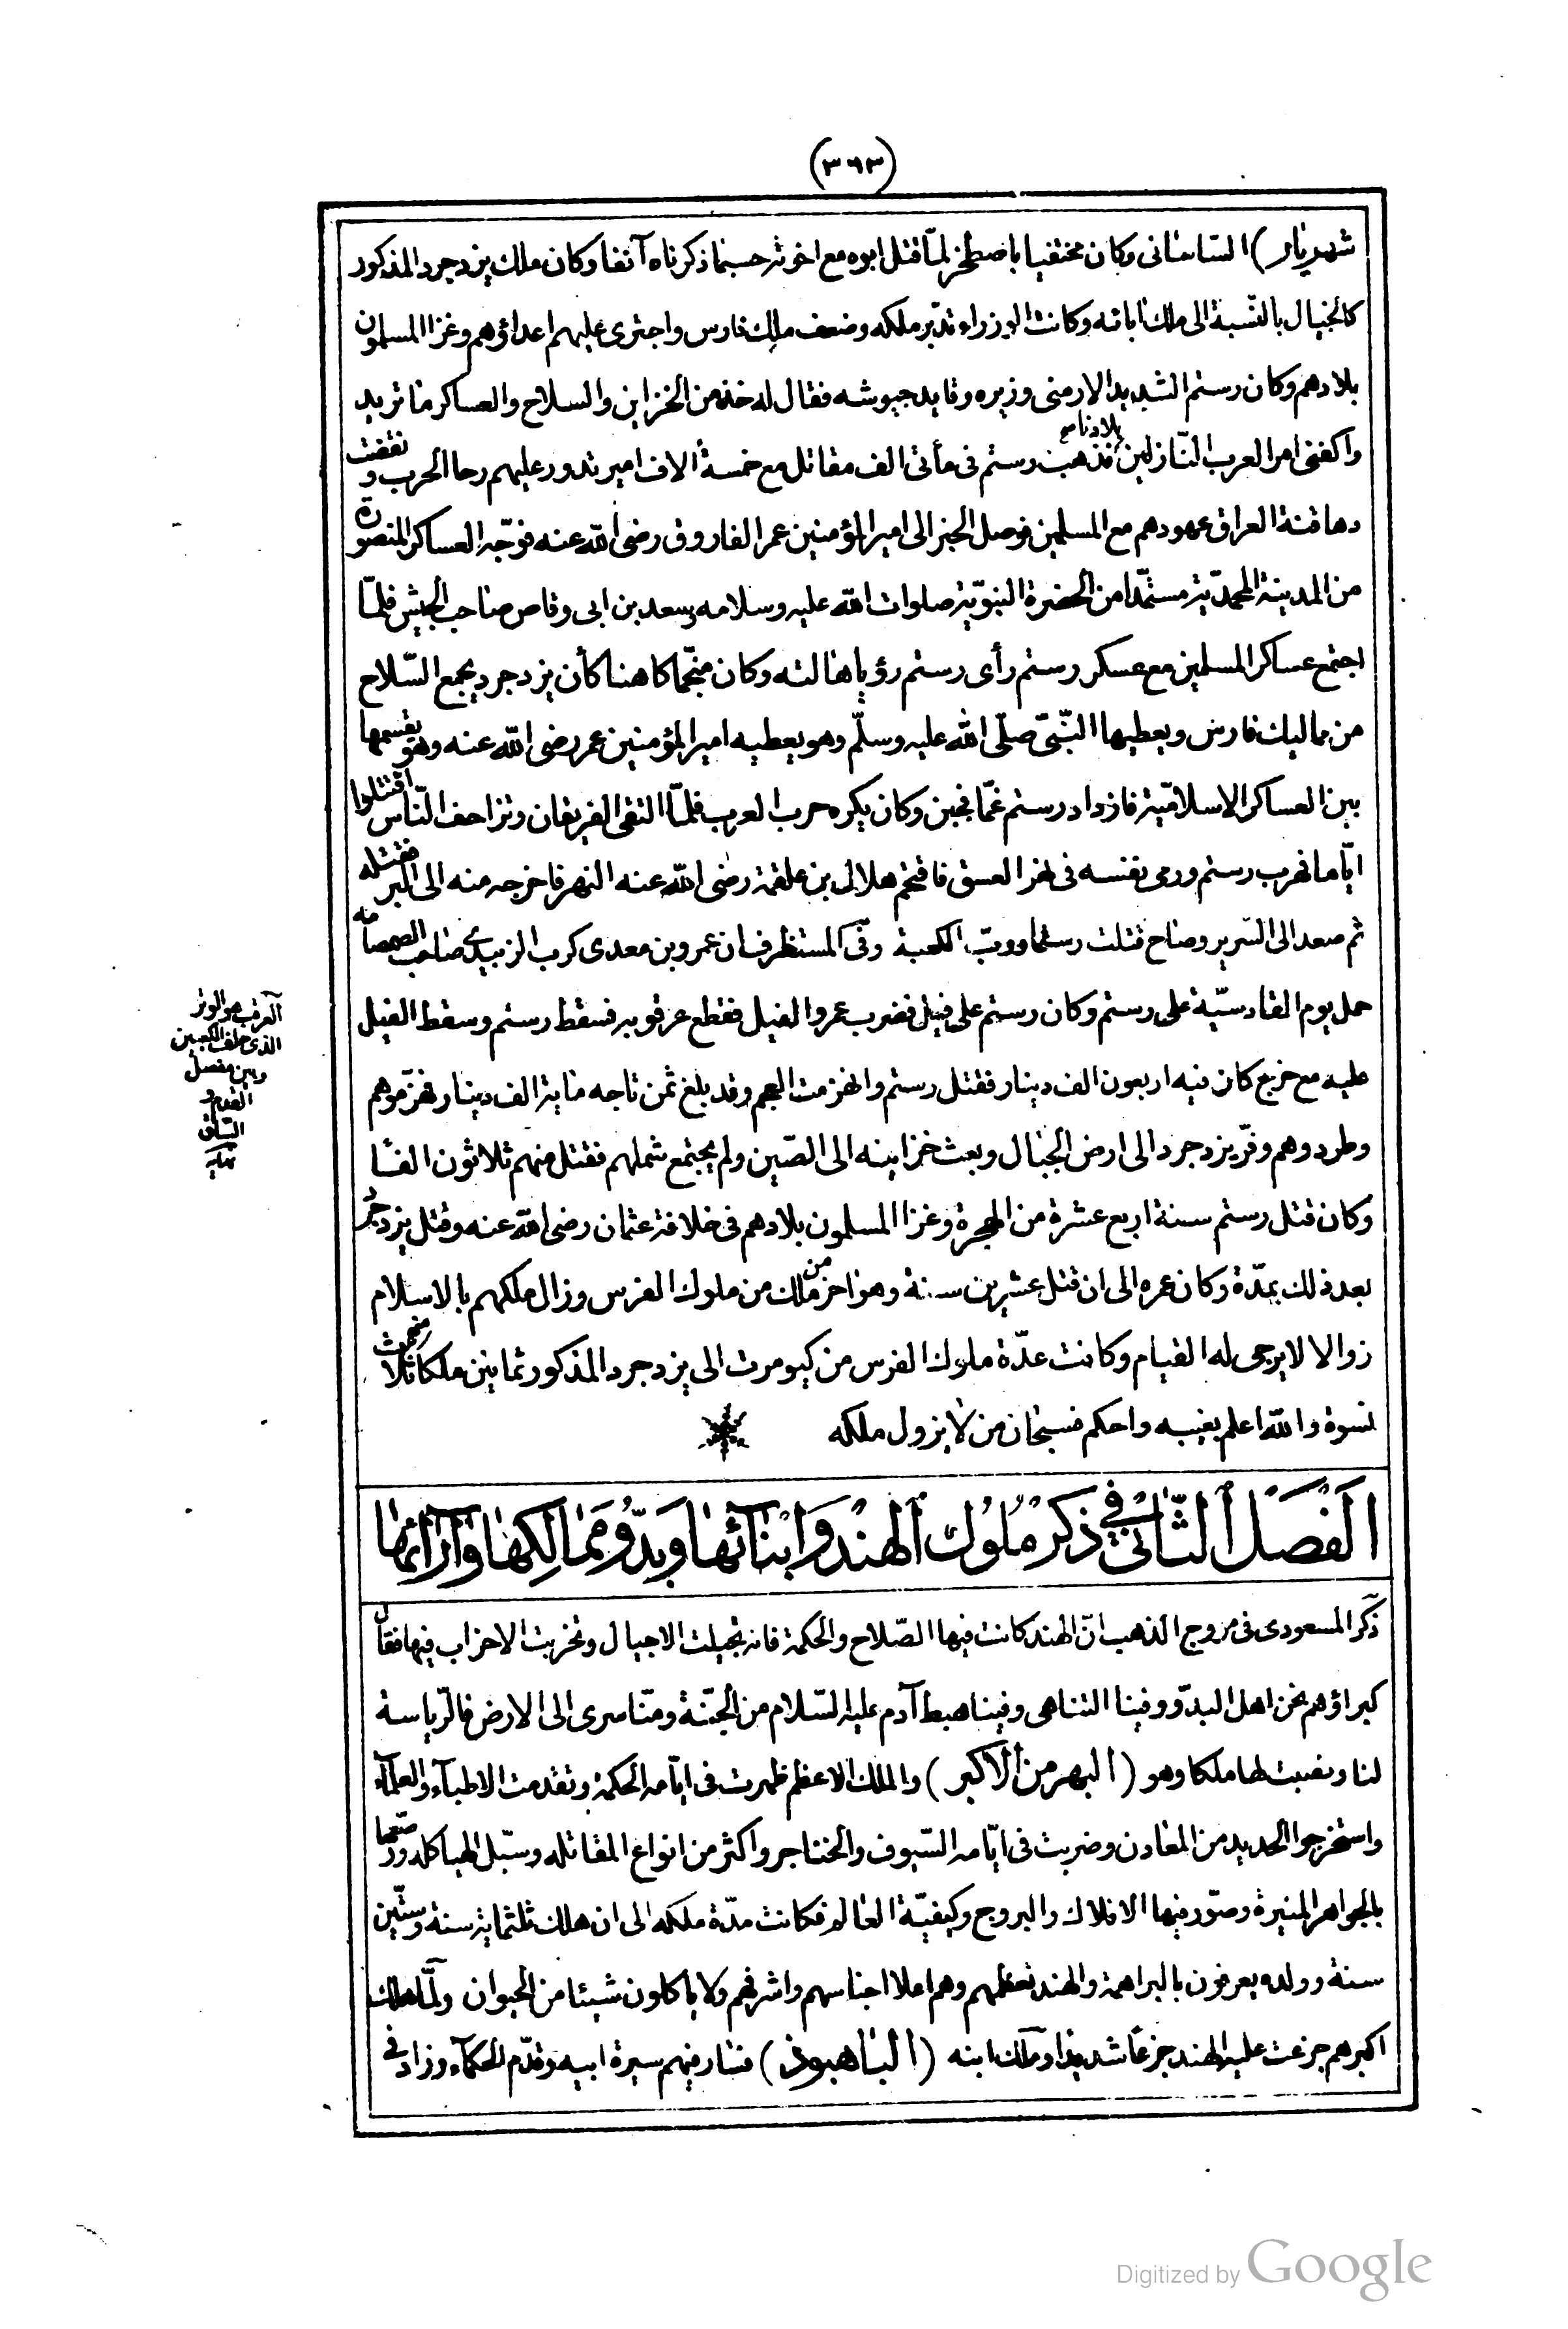 (٣٦٣)
شهريار) الساسانى وكان مختفيا باصطخر لما قتل ابوه مع اخوته حسبما ذكرناه آنفا وكان ملك يزدجرد المذكور
كالخيال بالنسبة الى ملك ابائه وكانت الوزراء تدبّر ملكه وضعف ملك فارس واجترى عليهم اعداؤهم وغزا المسلمون
بلادهم وكان رستم الشديد الارمنى وزيره وقايد جيوشه فقال له خذ من الخزاين والسلاح والعساكر ما تريد
واكفنى امر العرب النّازلين بلادنا صح فذهب رستم فى مأتى الف مقاتل مع خمسة ألاف امير تدور عليهم رحا الحرب ونقضت
دهاقنة العراق عهودهم مع المسلمين فوصل الخبر الى امير المؤمنين عمر الفاروق رضى الله عنه فوجّه العساكر المنصورة
من المدينة المحمّدية مستمدّا من الحضرة النبويّة صلوات الله عليه وسلامه وسعد بن ابى وقاص صاحب الجيش فلمّا
اجتمع عساكر المسلمين مع عسكر رستم رأى رستم رؤيا هالته وكان منجّما كاهنا كأن يزدجرد يجمع السّلاح
من مماليك فارس ويعطيها النّبىّ صلّى الله عليه وسلّم وهو يعطيه امير المؤمنين عمر رضى الله عنه وهو يقسمها
بين العساكر الاسلاميّة فازداد رستم غمّا فجبن وكان يكره حرب العرب فلمّا التقى الفريقان وتزاحف النّاس اقتتلوا
ايّاما فهرب رستم ورمى نفسه فى نهر العسق فاقتحم هلال بن علقمة رضى الله عنه النهر فاخرجه منه الى البر فقتله
ثم صعد الى السّرير وصاح قتلت رستما وربّ الكعبة وفى المستظرف ان عمرو بن معدى كرب الزبيدى صاحب الصمصامه
حمل يوم القادسيّة على رستم وكان رستم على فيل فضرب عمرو الفيل فقطع عرقوبه فسقط رستم وسقط الفيل
عليه مع خرج كان فيه اربعون الف دينار فقتل رستم وانهزمت العجم وقد بلغ ثمن تاجه ماية الف دينار فهزموهم
وطردوهم وفرّ يزدجرد الى ارض الجبال وبعث خزاينه الى الصّين ولم يجتمع شملهم فقتل منهم ثلاثون الفًا
وكان قتل رستم سنة اربع عشرة من الهجرة وغزا المسلمون بلادهم فى خلافة عثمان رضى الله عنه وقتل يزدجرد
بعد ذلك بمدّة وكان عمره الى ان قتل عشرين سنة وهو اخر من ملك من ملوك الفرس وزال ملكهم بالاسلام
زوالا لا يرجى له القيام وكانت عدّة ملوك الفرس من كيومرث الى يزدجرد المذكور ثمانين ملكا منهم ثلاث
نسوة والله اعلم بغيبه واحكم فسبحان من لا يزول ملكه
العرقب هو الوتر
الذى خلف الكعبين
وبين مفصل
القدم و
السّاق
نهايه
الفصل الثّانى فى ذكر ملوك الهند وابنائها وبدّو ممالكها وآرائها
ذكر المسعودى فى مروج الذهب انّ الهند كانت فيها الصّلاح والحكمة فانه تجيلت الاجيال وتحزبت الاحزاب فيها فقال
كبراؤهم نحن اهل البدّو وفينا التناهى وفينا هبط آدم عليه السّلام من الجنّة ومنّا سرى الى الارض فالرّياسة
لنا ونصبت لها ملكا وهو (البهرمن الاكبر) والملك الاعظم ظهرت فى ايّامه الحكمة وتقدمت الاطبآء والعلمآء
واستخرجوا الحديد من المعادن وضربت فى ايّامه السّيوف والخناجر واكثر من انواع المقاتله وسبّل الهياكل ورصّعها
بالجواهر المنيرة وصوّر فيها الافلاك والبروج وكيفيّة العالم فكانت مدّة ملكه الى ان هلك ثلثماية سنة وستّين
سنة وولده يعرفون بالبراهمة والهند تعظمهم وهم اعلا اجناسهم واشرفهم ولا ياكلون شيئا من الحيوان ولمّا هلك
اكبرهم جزعت عليه الهند جزعًا شديدًا وملك ابنه (الباهبوذ) فسار فيهم سيرة ابيه وقدّم الحكمآء وزاد فى
Digitized by Google